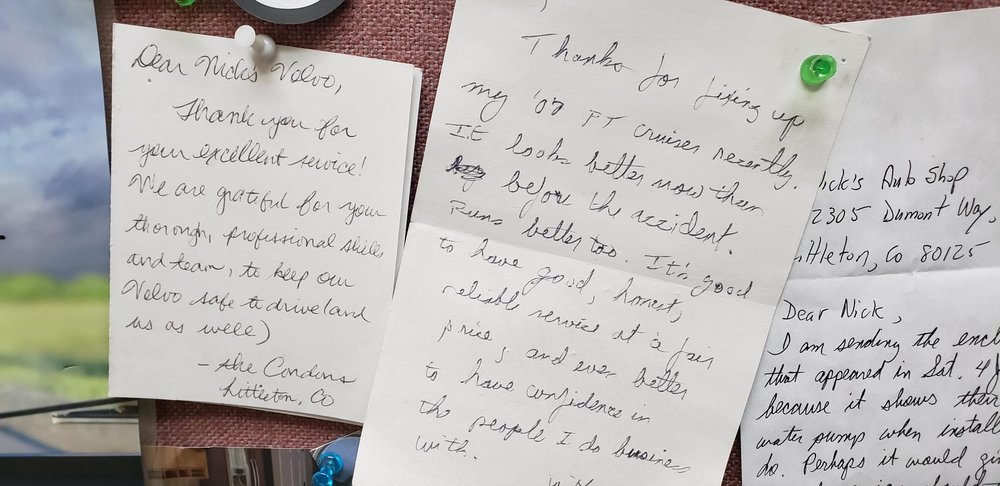 Dear Nick's Volvo,
Thank you for
your excellent service!
We are grateful for your
thorough, professional skills
and team, to keep our
Volvo safe to drive (and
us as well)
- the Condons
Littleton, CO
Thanks for fixing up
my '07 PT cruiser recently.
It looks better now then
before the accident.
Runs better too. It's good
to have good, honest,
reliable service at a fair
price, and even better
to have confidence in
the people I do business
with.
ick's Auto Shop
2305 Dumont Way,
ittleton, CO 80125
Dear Nick,
I am sending the encl
that appeared in Sat. 4
because it shows their
water pump when install
do. Perhaps it would gi